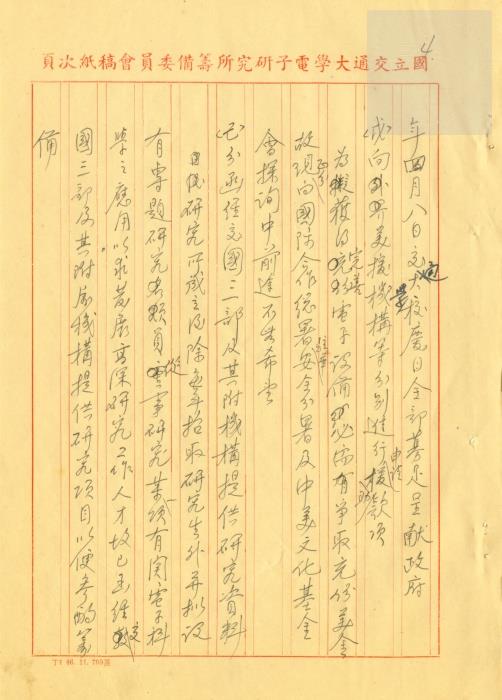 國立交通大學電子研究所籌備委員會稿紙次頁
4
年四月八日交通大學校慶日全部基定呈献政府
戓向外界美援機構等分别進行申請援助款項
為獲得完善電子設備必需有爭取充份美金
故現向國際合作總署駐華安全分署及中美文化基金
會探詢中前途不無希望
已分函經交國三部及其附機構提供研究資料
研究所成立後除每年招取研究生外并拟設
有專題研究員從事研究某項有關電子科
學之應用以求發展高深研究工作人才故已函經交
國三部及其附属機構提供研究項目以便參酌籌
備
T1 46. 11. 700張